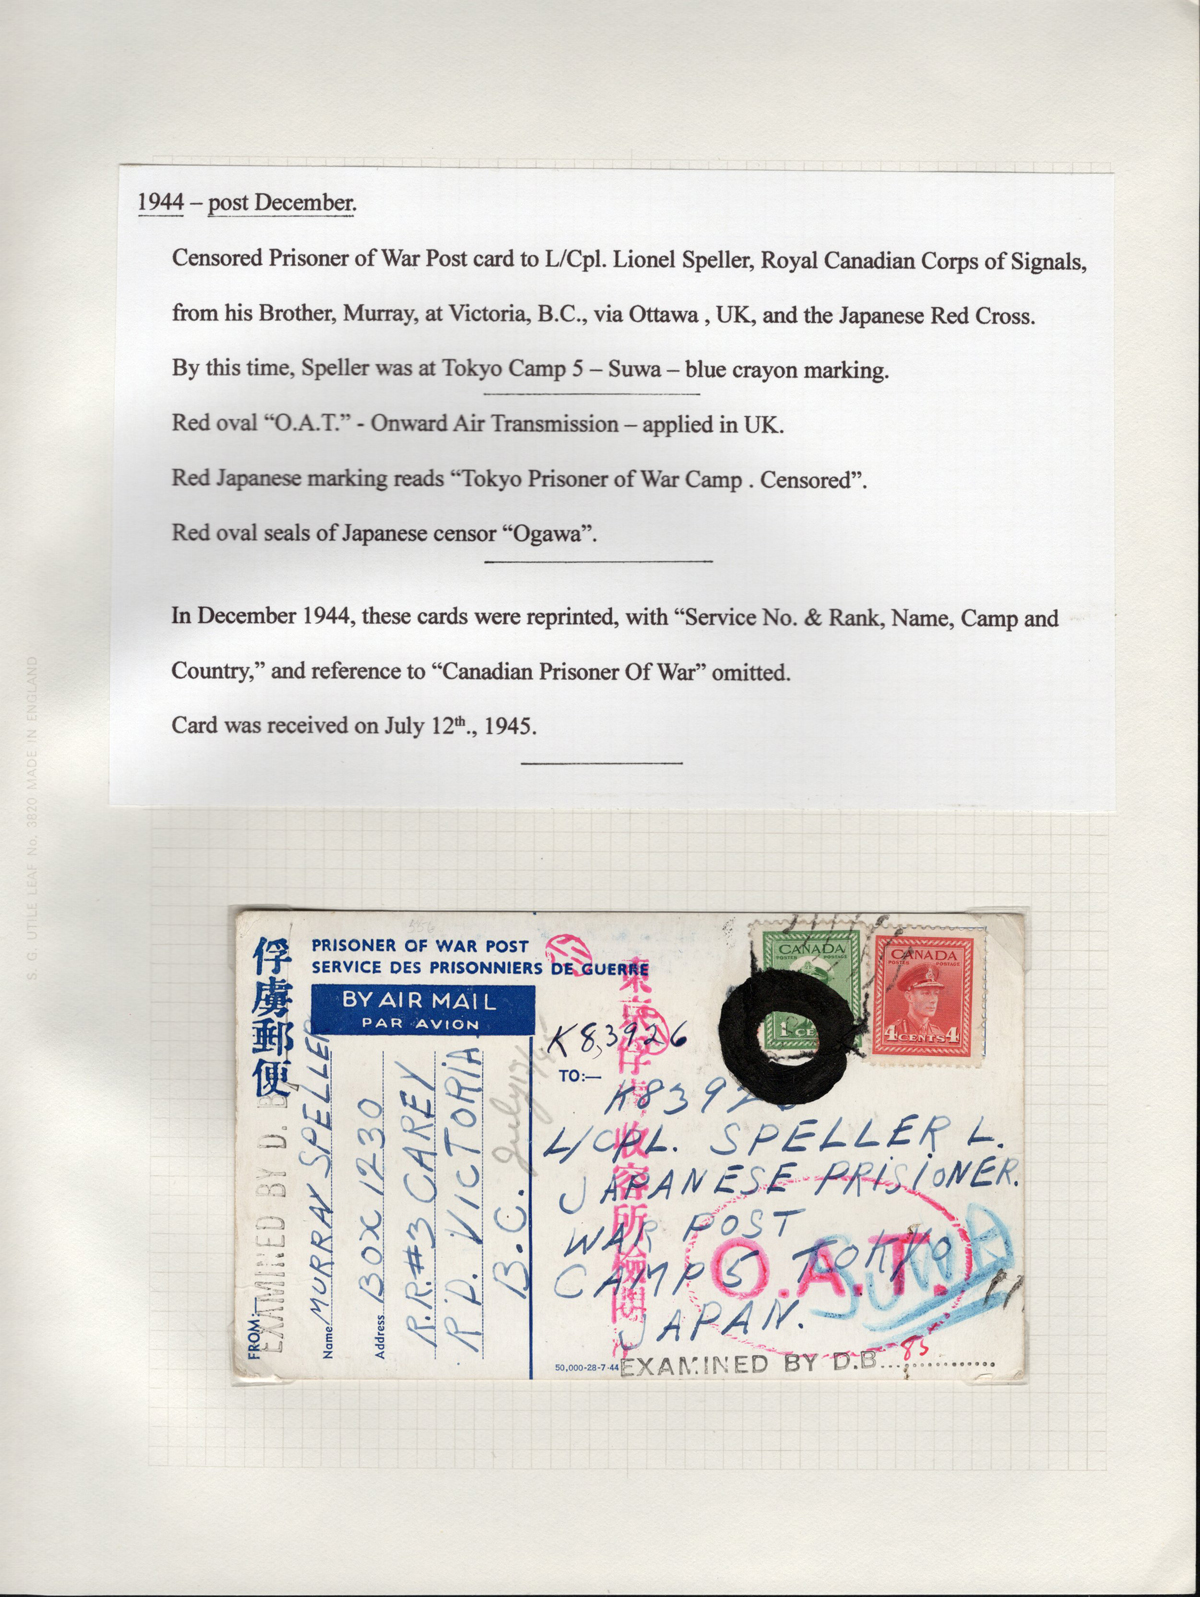 1944 – post December.
Censored Prisoner of War Post card to L/Cpl. Lionel Speller, Royal Canadian Corps of Signals,
from his Brother, Murray, at Victoria, B.C., via Ottawa , UK, and the Japanese Red Cross.
By this time, Speller was at Tokyo Camp 5 – Suwa – blue crayon marking.
Red oval “O.A.T.” - Onward Air Transmission – applied in UK.
Red Japanese marking reads “Tokyo Prisoner of War Camp . Censored”.
Red oval seals of Japanese censor “Ogawa”.
In December 1944, these cards were reprinted, with “Service No. & Rank, Name, Camp and
Country,” and reference to “Canadian Prisoner Of War” omitted.
Card was received on July 12th., 1945.
S. G. UTILE LEAF No. 3820 MADE IN ENGLAND
俘虜郵便
PRISONER OF WAR POST
SERVICE DES PRISONNIERS DE GUERRE
BY AIR MAIL
PAR AVION
FROM:—
EXAMINED BY D. B.
Name MURRAY SPELLER
Address BOX 1230
R.R.#3 CAREY
RD. VICTORIA
B.C.
CANADA
POSTAGE POSTAGE
1 CE
CANADA
POSTES POSTAGE
4 CENTS 4
K83926
TO:—
K839
L/CPL. SPELLER L.
JAPANESE PRISIONER.
WAR POST
CAMP 5 TOKYO
JAPAN.
東京俘虜收容所檢閱
O.A.T.
SUWA
50,000-28-7-44
EXAMINED BY D.B... 85